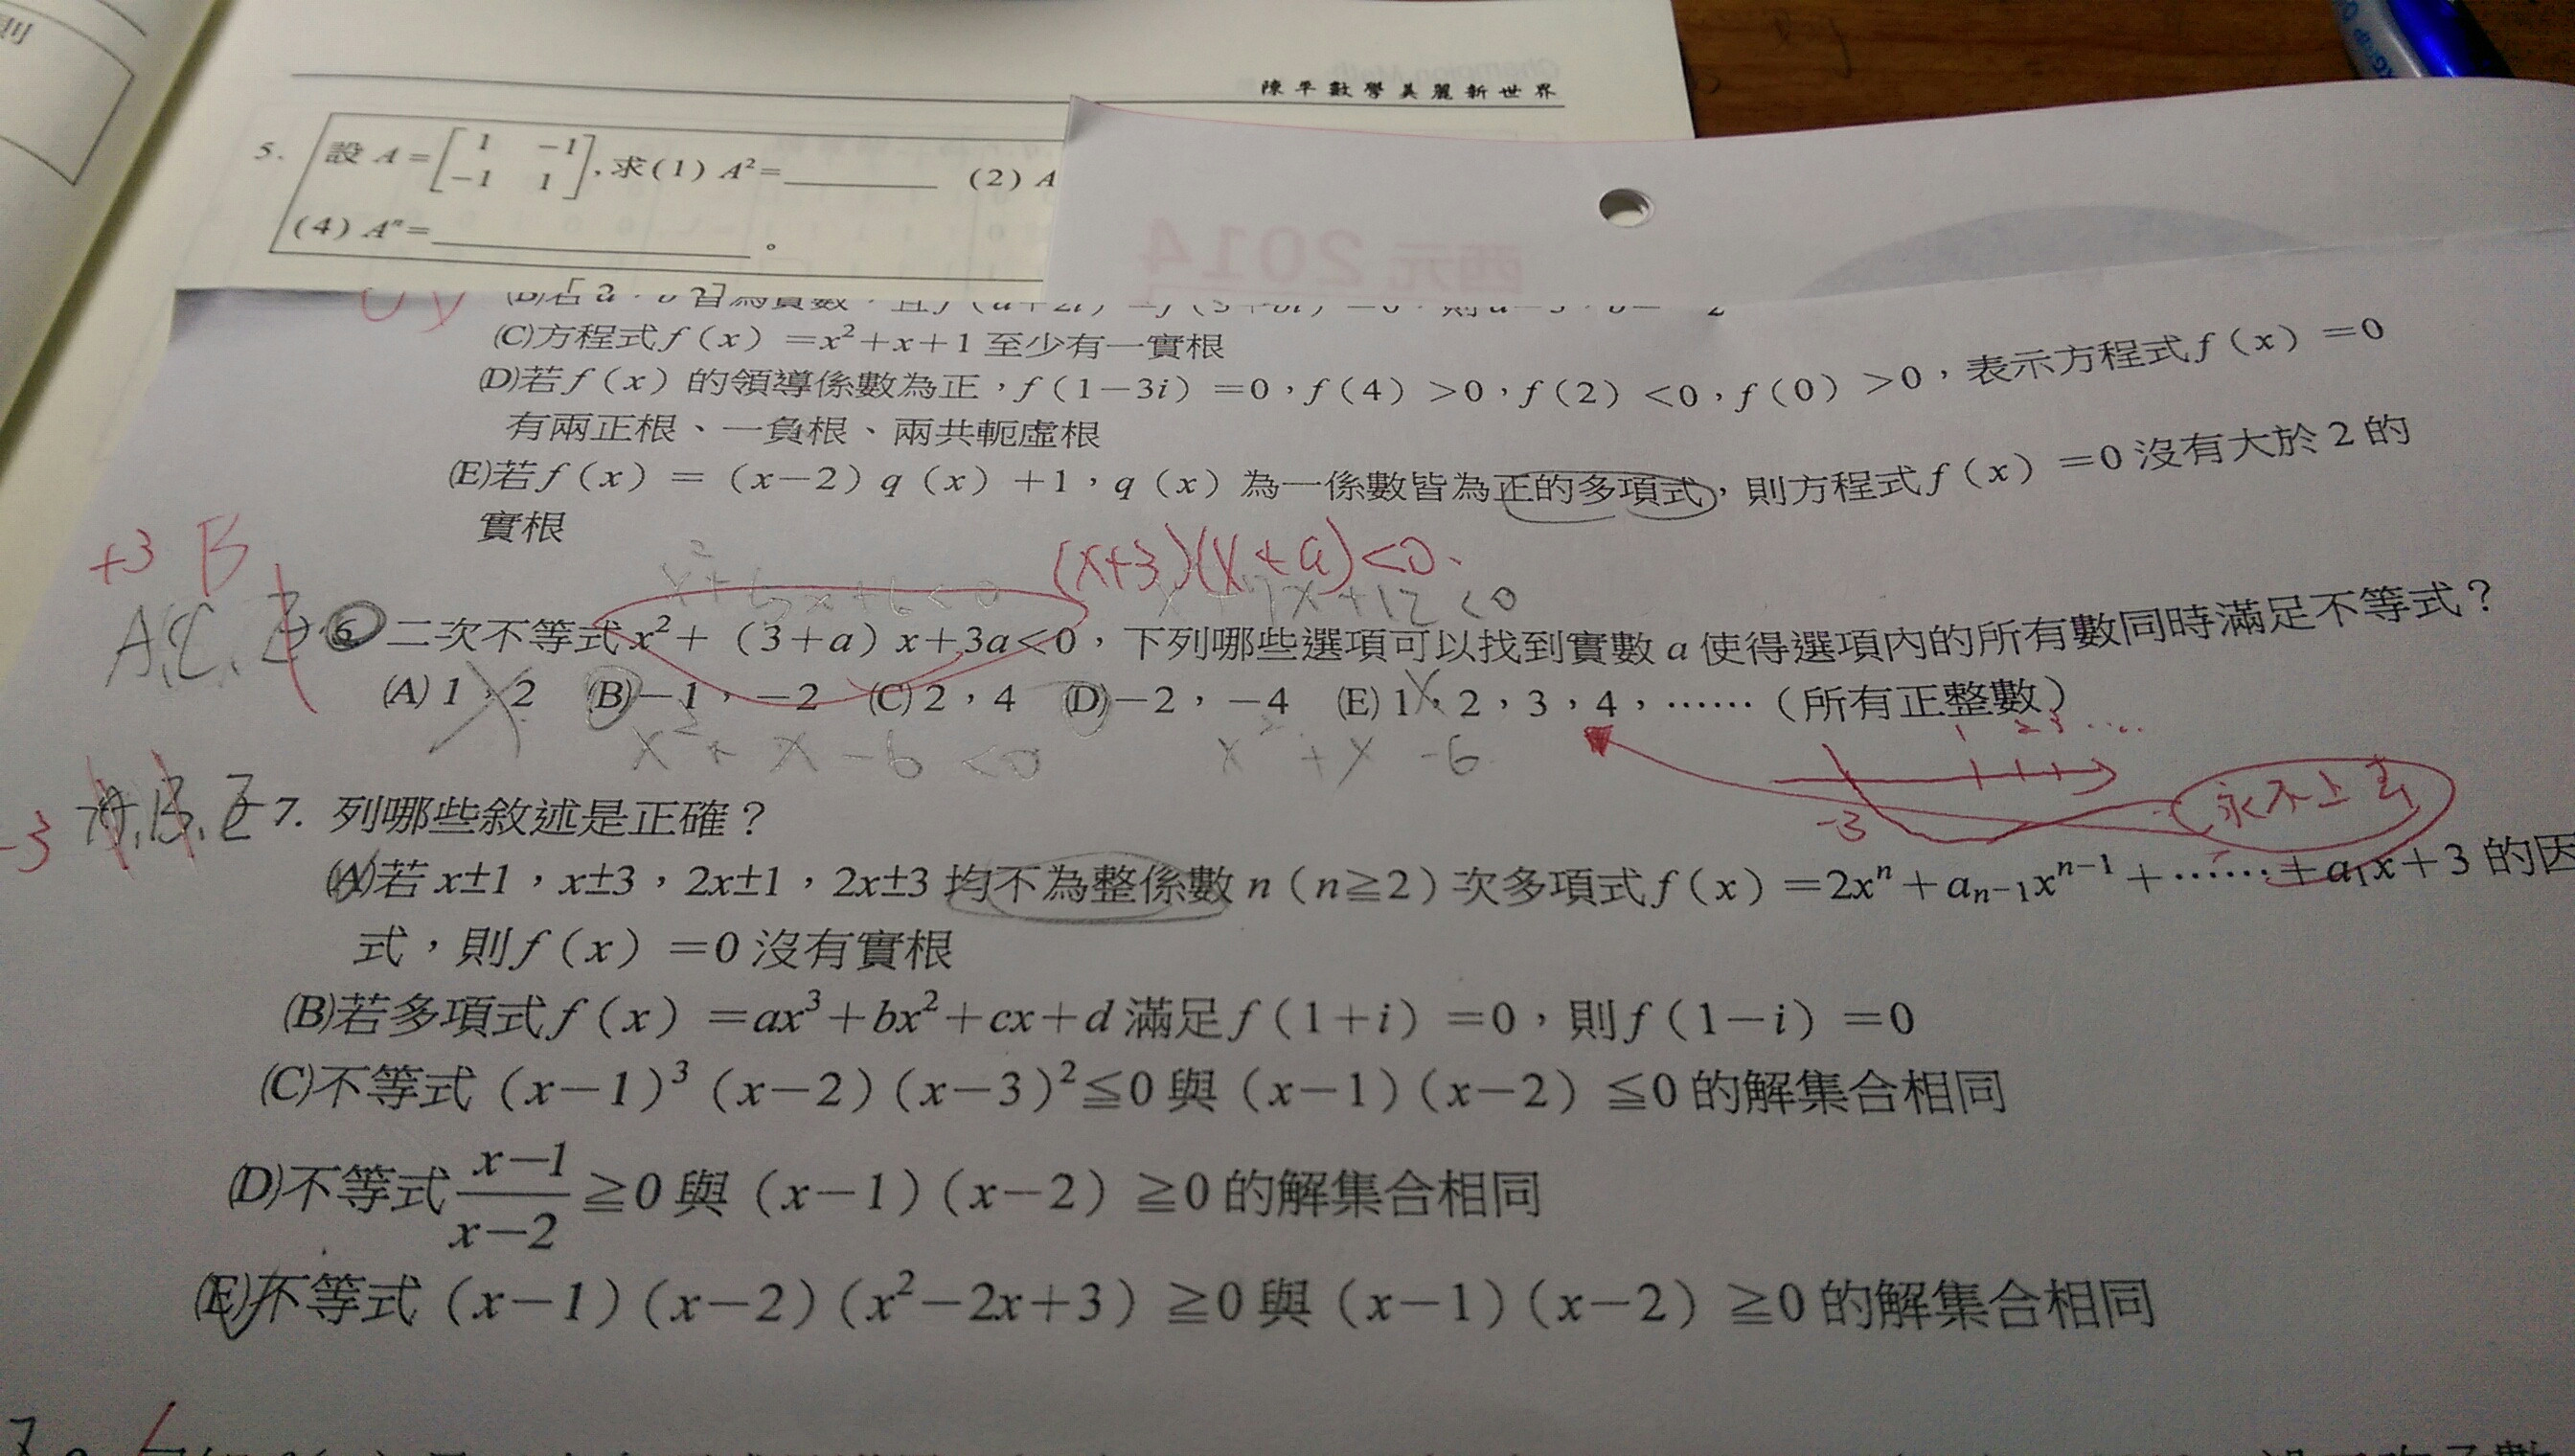 則
陳平數學美麗新世界
5. 設 A = [1 -1; -1 1],求(1) A²=________ (2) A
(4) Aⁿ=____________。
西元 2014
(C)方程式 f(x)=x²+x+1 至少有一實根
(D)若 f(x)的領導係數為正,f(1-3i)=0,f(4)>0,f(2)<0,f(0)>0,表示方程式 f(x)=0
有兩正根、一負根、兩共軛虛根
(E)若 f(x)=(x-2)q(x)+1,q(x)為一係數皆為正的多項式,則方程式 f(x)=0 沒有大於 2 的
實根
+3 B
(x+3)(x+a)<0
x²+ x+6<0
+7x+12<0
A,C,E 6. 二次不等式 x²+(3+a)x+3a<0,下列哪些選項可以找到實數 a 使得選項內的所有數同時滿足不等式?
(A) 1,2 (B)-1,-2 (C) 2,4 (D)-2,-4 (E) 1,2,3,4,……(所有正整數)
x²+x-6<0 x²+x-6
1 2 3 ...
-3 永不上去
-3 A,B,E 7. 列哪些敘述是正確?
(A)若 x±1,x±3,2x±1,2x±3 均不為整係數 n(n≧2)次多項式 f(x)=2xⁿ+aₙ₋₁xⁿ⁻¹+……+a₁x+3 的因
式,則 f(x)=0 沒有實根
(B)若多項式 f(x)=ax³+bx²+cx+d 滿足 f(1+i)=0,則 f(1-i)=0
(C)不等式(x-1)³(x-2)(x-3)²≦0 與(x-1)(x-2)≦0 的解集合相同
(D)不等式 (x-1)/(x-2) ≧0 與(x-1)(x-2)≧0 的解集合相同
(E)不等式(x-1)(x-2)(x²-2x+3)≧0 與(x-1)(x-2)≧0 的解集合相同